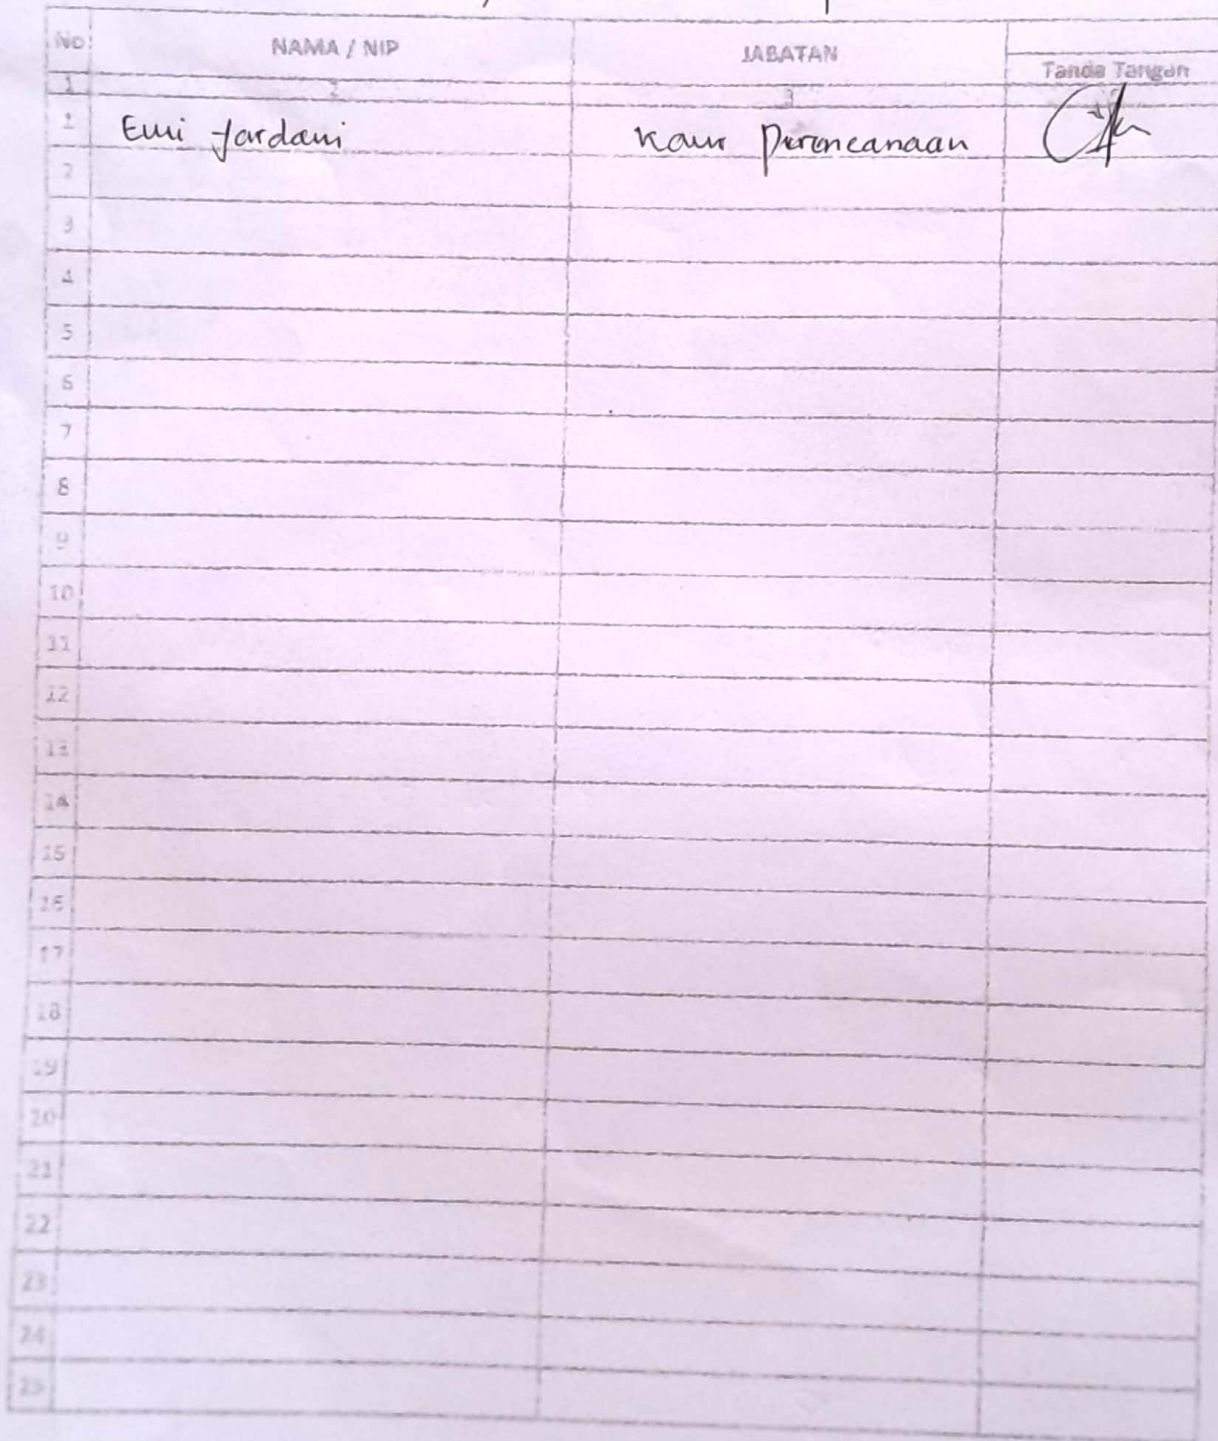 No NAMA / NIP JABATAN
Tanda Tangan
1 2 3
1 Emi Jardani Kaur Perencanaan
2
3
4
5
6
7
8
9
10
11
12
13
14
15
16
17
18
19
20
21
22
23
24
25